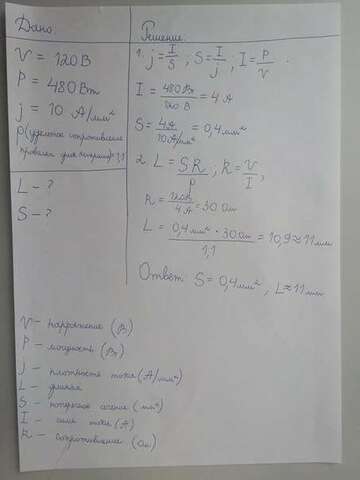 Дано:
V = 120 В
P = 480 Вт
j = 10 А/мм²
ρ (удельное сопротивление
проволоки 1,1
L - ?
S - ?
Решение:
1. j = I/S ; S = I/j ; I = P/V .
I = 480 Вт/120 В = 4 А
S = 4 А/10 А/мм² = 0,4 мм²
2. L = SR/ρ ; R = V/I ,
R = 120 В/4 А = 30 Ом
L = 0,4 мм² · 30 Ом/1,1 = 10,9 ≈ 11 мм
Ответ: S = 0,4 мм² , L ≈ 11 мм
V - напряжение (В)
P - мощность (Вт)
j - плотность тока (А/мм²)
L - длина
S - поперечное сечение (мм²)
I - сила тока (А)
R - сопротивление (Ом)